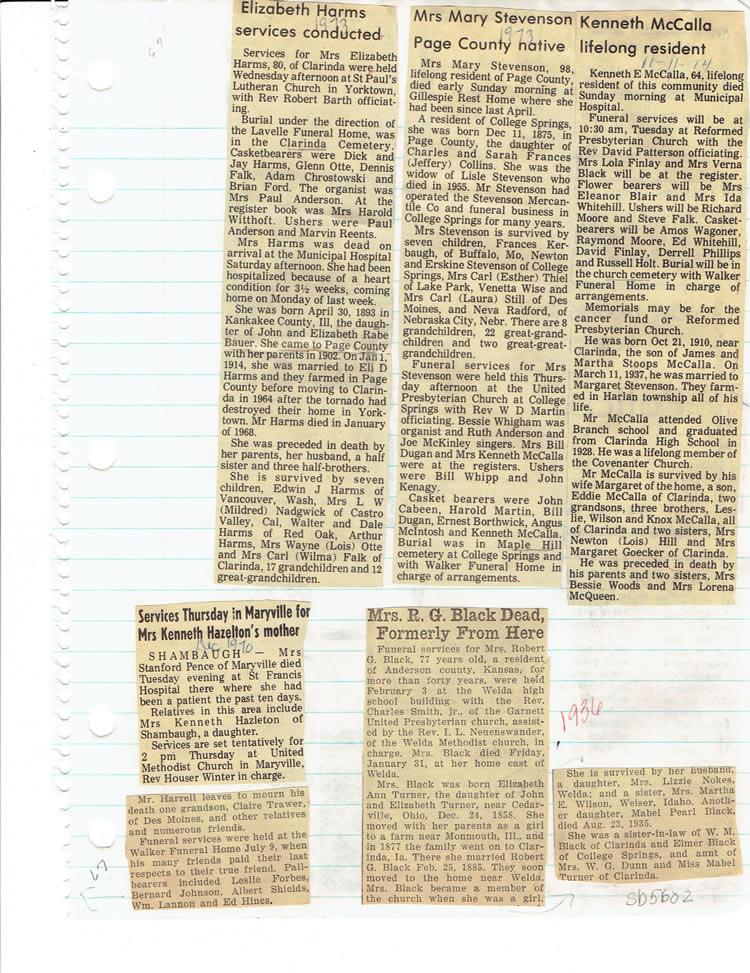 Elizabeth Harms
services conducted
1973
Services for Mrs Elizabeth
Harms, 80, of Clarinda were held
Wednesday afternoon at St Paul's
Lutheran Church in Yorktown,
with Rev Robert Barth officiat-
ing.
Burial under the direction of
the Lavelle Funeral Home, was
in the Clarinda Cemetery.
Casketbearers were Dick and
Jay Harms, Glenn Otte, Dennis
Falk, Adam Chrostowski and
Brian Ford. The organist was
Mrs Paul Anderson. At the
register book was Mrs Harold
Witthoft. Ushers were Paul
Anderson and Marvin Reents.
Mrs Harms was dead on
arrival at the Municipal Hospital
Saturday afternoon. She had been
hospitalized because of a heart
condition for 3½ weeks, coming
home on Monday of last week.
She was born April 30, 1893 in
Kankakee County, Ill, the daugh-
ter of John and Elizabeth Rabe
Bauer. She came to Page County
with her parents in 1902. On Jan 1,
1914, she was married to Eli D
Harms and they farmed in Page
County before moving to Clarin-
da in 1964 after the tornado had
destroyed their home in York-
town. Mr Harms died in January
of 1968.
She was preceded in death by
her parents, her husband, a half
sister and three half-brothers.
She is survived by seven
children, Edwin J Harms of
Vancouver, Wash, Mrs L W
(Mildred) Nadgwick of Castro
Valley, Cal, Walter and Dale
Harms of Red Oak, Arthur
Harms, Mrs Wayne (Lois) Otte
and Mrs Carl (Wilma) Falk of
Clarinda, 17 grandchildren and 12
great-grandchildren.
Mrs Mary Stevenson
1973
Page County native
Mrs Mary Stevenson, 98,
lifelong resident of Page County,
died early Sunday morning at
Gillespie Rest Home where she
had been since last April.
A resident of College Springs,
she was born Dec 11, 1875, in
Page County, the daughter of
Charles and Sarah Frances
(Jeffery) Collins. She was the
widow of Lisle Stevenson who
died in 1955. Mr Stevenson had
operated the Stevenson Mercan-
tile Co and funeral business in
College Springs for many years.
Mrs Stevenson is survived by
seven children, Frances Ker-
baugh, of Buffalo, Mo, Newton
and Erskine Stevenson of College
Springs, Mrs Carl (Esther) Thiel
of Lake Park, Venetta Wise and
Mrs Carl (Laura) Still of Des
Moines, and Neva Radford, of
Nebraska City, Nebr. There are 8
grandchildren, 22 great-grand-
children and two great-great-
grandchildren.
Funeral services for Mrs
Stevenson were held this Thurs-
day afternoon at the United
Presbyterian Church at College
Springs with Rev W D Martin
officiating. Bessie Whigham was
organist and Ruth Anderson and
Joe McKinley singers. Mrs Bill
Dugan and Mrs Kenneth McCalla
were at the registers. Ushers
were Bill Whipp and John
Kenagy.
Casket bearers were John
Cabeen, Harold Martin, Bill
Dugan, Ernest Borthwick, Angus
McIntosh and Kenneth McCalla.
Burial was in Maple Hill
cemetery at College Springs and
with Walker Funeral Home in
charge of arrangements.
Kenneth McCalla
lifelong resident
11-11-74
Kenneth E McCalla, 64, lifelong
resident of this community died
Sunday morning at Municipal
Hospital.
Funeral services will be at
10:30 am, Tuesday at Reformed
Presbyterian Church with the
Rev David Patterson officiating.
Mrs Lola Finlay and Mrs Verna
Black will be at the register.
Flower bearers will be Mrs
Eleanor Blair and Mrs Ida
Whitehill. Ushers will be Richard
Moore and Steve Falk. Casket-
bearers will be Amos Wagoner,
Raymond Moore, Ed Whitehill,
David Finlay, Derrell Phillips
and Russell Holt. Burial will be in
the church cemetery with Walker
Funeral Home in charge of
arrangements.
Memorials may be for the
cancer fund or Reformed
Presbyterian Church.
He was born Oct 21, 1910, near
Clarinda, the son of James and
Martha Stoops McCalla. On
March 11, 1937, he was married to
Margaret Stevenson. They farm-
ed in Harlan township all of his
life.
Mr McCalla attended Olive
Branch school and graduated
from Clarinda High School in
1928. He was a lifelong member of
the Covenanter Church.
Mr McCalla is survived by his
wife Margaret of the home, a son,
Eddie McCalla of Clarinda, two
grandsons, three brothers, Les-
lie, Wilson and Knox McCalla, all
of Clarinda and two sisters, Mrs
Newton (Lois) Hill and Mrs
Margaret Goecker of Clarinda.
He was preceded in death by
his parents and two sisters, Mrs
Bessie Woods and Mrs Lorena
McQueen.
Services Thursday in Maryville for
Mrs Kenneth Hazelton's mother
Dec 1970
SHAMBAUGH — Mrs
Stanford Pence of Maryville died
Tuesday evening at St Francis
Hospital there where she had
been a patient the past ten days.
Relatives in this area include
Mrs Kenneth Hazleton of
Shambaugh, a daughter.
Services are set tentatively for
2 pm Thursday at United
Methodist Church in Maryville,
Rev Houser Winter in charge.
Mr. Harrell leaves to mourn his
death one grandson, Claire Trawer,
of Des Moines, and other relatives
and numerous friends.
Funeral services were held at the
Walker Funeral Home July 9, when
his many friends paid their last
respects to their true friend. Pall-
bearers included Leslie Forbes,
Bernard Johnson, Albert Shields,
Wm. Lannon and Ed Hines.
Mrs. R. G. Black Dead,
Formerly From Here
Funeral services for Mrs. Robert
G. Black, 77 years old, a resident
of Anderson county, Kansas, for
more than forty years, were held
February 3 at the Welda high
school building with the Rev.
Charles Smith, jr., of the Garnett
United Presbyterian church, assist-
ed by the Rev. I. L. Neuenswander,
of the Welda Methodist church, in
charge. Mrs. Black died Friday,
January 31, at her home east of
Welda.
Mrs. Black was born Elizabeth
Ann Turner, the daughter of John
and Elizabeth Turner, near Cedar-
ville, Ohio, Dec. 24, 1858. She
moved with her parents as a girl
to a farm near Monmouth, Ill., and
in 1877 the family went on to Clar-
inda, Ia. There she married Robert
G. Black Feb. 25, 1885. They soon
moved to the home near Welda.
Mrs. Black became a member of
the church when she was a girl.
1936
She is survived by her husband,
a daughter, Mrs. Lizzie Nokes,
Welda; and a sister, Mrs. Martha
E. Wilson, Weiser, Idaho. Anoth-
er daughter, Mabel Pearl Black,
died Aug. 23, 1935.
She was a sister-in-law of W. M.
Black of Clarinda and Elmer Black
of College Springs, and aunt of
Mrs. W. G. Dunn and Miss Mabel
Turner of Clarinda.
SD5602